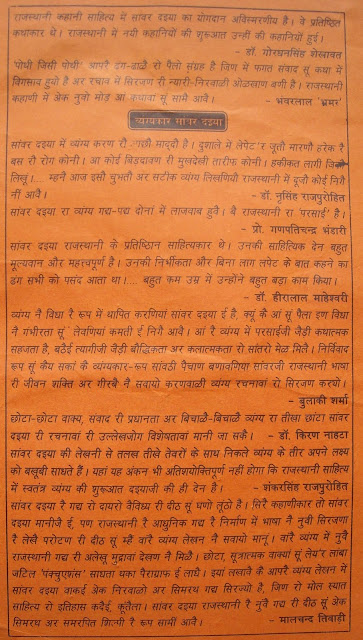 राजस्थानी कहानी साहित्य में सांवर दइया का योगदान अविस्मरणीय है। वे प्रतिष्ठित
कथाकार थे। राजस्थानी में नयी कहानियों की शुरुआत उन्हीं की कहानियां हुई।
- डॉ. गोरधनसिंह शेखावत
'पोथी जिसी पोथी' आपरै ढंग-ढाळै रो पैलो संग्रह है जिण में फगत संवाद सूं कथा में
विगसाव हुयो है अर रचाव में सिरजण री न्यारी-निरवाळी ओळखाण बणी है। राजस्थानी
कहाणी में अेक नुवो मोड़ आं कथावां सूं सामै आवै।
- भंवरलाल 'भ्रमर'
व्यंग्यकार सांवर दइया
सांवर दइया में व्यंग्य करण रौ मादूदौ है। दुशाले में लपेट'र जूतौ मारणौ हरेक रै
बस रौ रोग कोनी। आ कोई बिड़दावण री मुखदेखी तारीफ कोनी। हकीकत लागी जिकी
लिखूं।... म्हनै आज इसौ चुभतौ अर सटीक व्यंग्य लिखणियौ राजस्थानी में दूजौ कोई निगै
नीं आवै।
- डॉ. नृसिंह राजपुरोहित
सांवर दइया रा व्यंग्य गद्य-पद्य दोनां में लाजवाब हुवै। बै राजस्थानी रा 'परसाई' है।
- प्रो. गणपतिचन्द्र भंडारी
सांवर दइया राजस्थानी के प्रतिष्ठित साहित्यकार थे। उनकी साहित्यिक देन बहुत
मूल्यवान और महत्त्वपूर्ण है। उनकी निर्भीकता और बिना लाग लपेट के बात कहने का
ढंग सभी को पसंद आता था।.... बहुत कम उम्र में उन्होंने बहुत बड़ा काम किया।
- डॉ. हीरालाल माहेश्वरी
व्यंग्य नै विधा रै रूप में थापित करणियां सांवर दइया ई है, क्यूं कै आं सूं पैला इण विधा
नै गंभीरता सूं लेवणियां कमती ई निगै आवै। आं रै व्यंग्य में परसाईजी जैड़ी कथात्मक
सहजता है, बठैई त्यागीजी जैड़ी बौद्धिकता अर कलात्मकता रो सांतरो मेळ मिलै। निर्विवाद
रूप सूं कैय सकां कै व्यंग्यकार-रूप सांवठी पैचाण बणावणिया सांवरजी राजस्थानी भाषा
री जीवन शक्ति अर गीरबै नै सवायो करणवाळी व्यंग्य रचनावां रो सिरजण करयो।
- बुलाकी शर्मा
छोटा-छोटा वाक्य, संवाद री प्रधानता अर बिचाळै-बिचाळै व्यंग्य रा तीखा छांटा सांवर
दइया री रचनावां री उल्लेखजोग विशेषतावां मानी जा सकै। - डॉ. किरण नाहटा
सांवर दइया की लेखनी से तलख तीखे तेवरों के साथ निकले व्यंग्य के तीर अपने लक्ष्य
को बखूबी साधते हैं। यहां यह अंकन भी अतिशयोक्तिपूर्ण नहीं होगा कि राजस्थानी साहित्य
में स्वतंत्र व्यंग्य की शुरुआत दइयाजी की ही देन है। - शंकरसिंह राजपुरोहित
सांवर दइया रै गद्य रो दायरो वैविध्य री दीठ सूं घणो लूंठो है। सिरै कहाणीकार तो सांवर
दइया मानीजै ई, पण राजस्थानी रै आधुनिक गद्य रै निर्माण में भाषा नै नुवी सिरजणा
रै लेखै परोटण री दीठ सूं म्हैं वांरै व्यंग्य लेखन नै सवायो मानूं। वांरै व्यंग्य में नुवै
राजस्थानी गद्य री अलेखूं मुद्रावां देखण नै मिळै। छोटा, सूत्रात्मक वाक्यां सूं लेय'र लांबा
जटिल 'पंक्चुएशंस' साधता थका पैराग्राफ ई लाधै। इयां लखावै कै आपरै व्यंग्य लेखन में
सांवर दइया वाकई अेक निरवाळो अर सिमरथ गद्य सिरज्यो है, जिण रो मोल स्यात
साहित्य रो इतिहास कदैई, कूंतैला। सांवर दइया राजस्थानी रै नुवै गद्य री दीठ सूं अेक
सिमरथ अर समरपित शिल्पी रै रूप सामीं आवै।
- मालचन्द तिवाड़ी